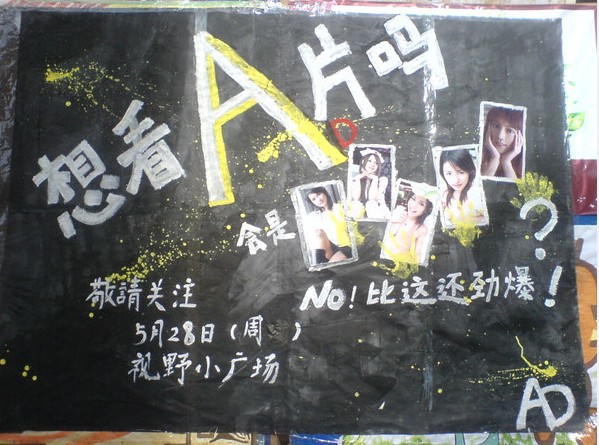 想看A片吗
D
会是
?
No!比这还劲爆!
敬請关注
5月28日(周 )
视野小广场
AD